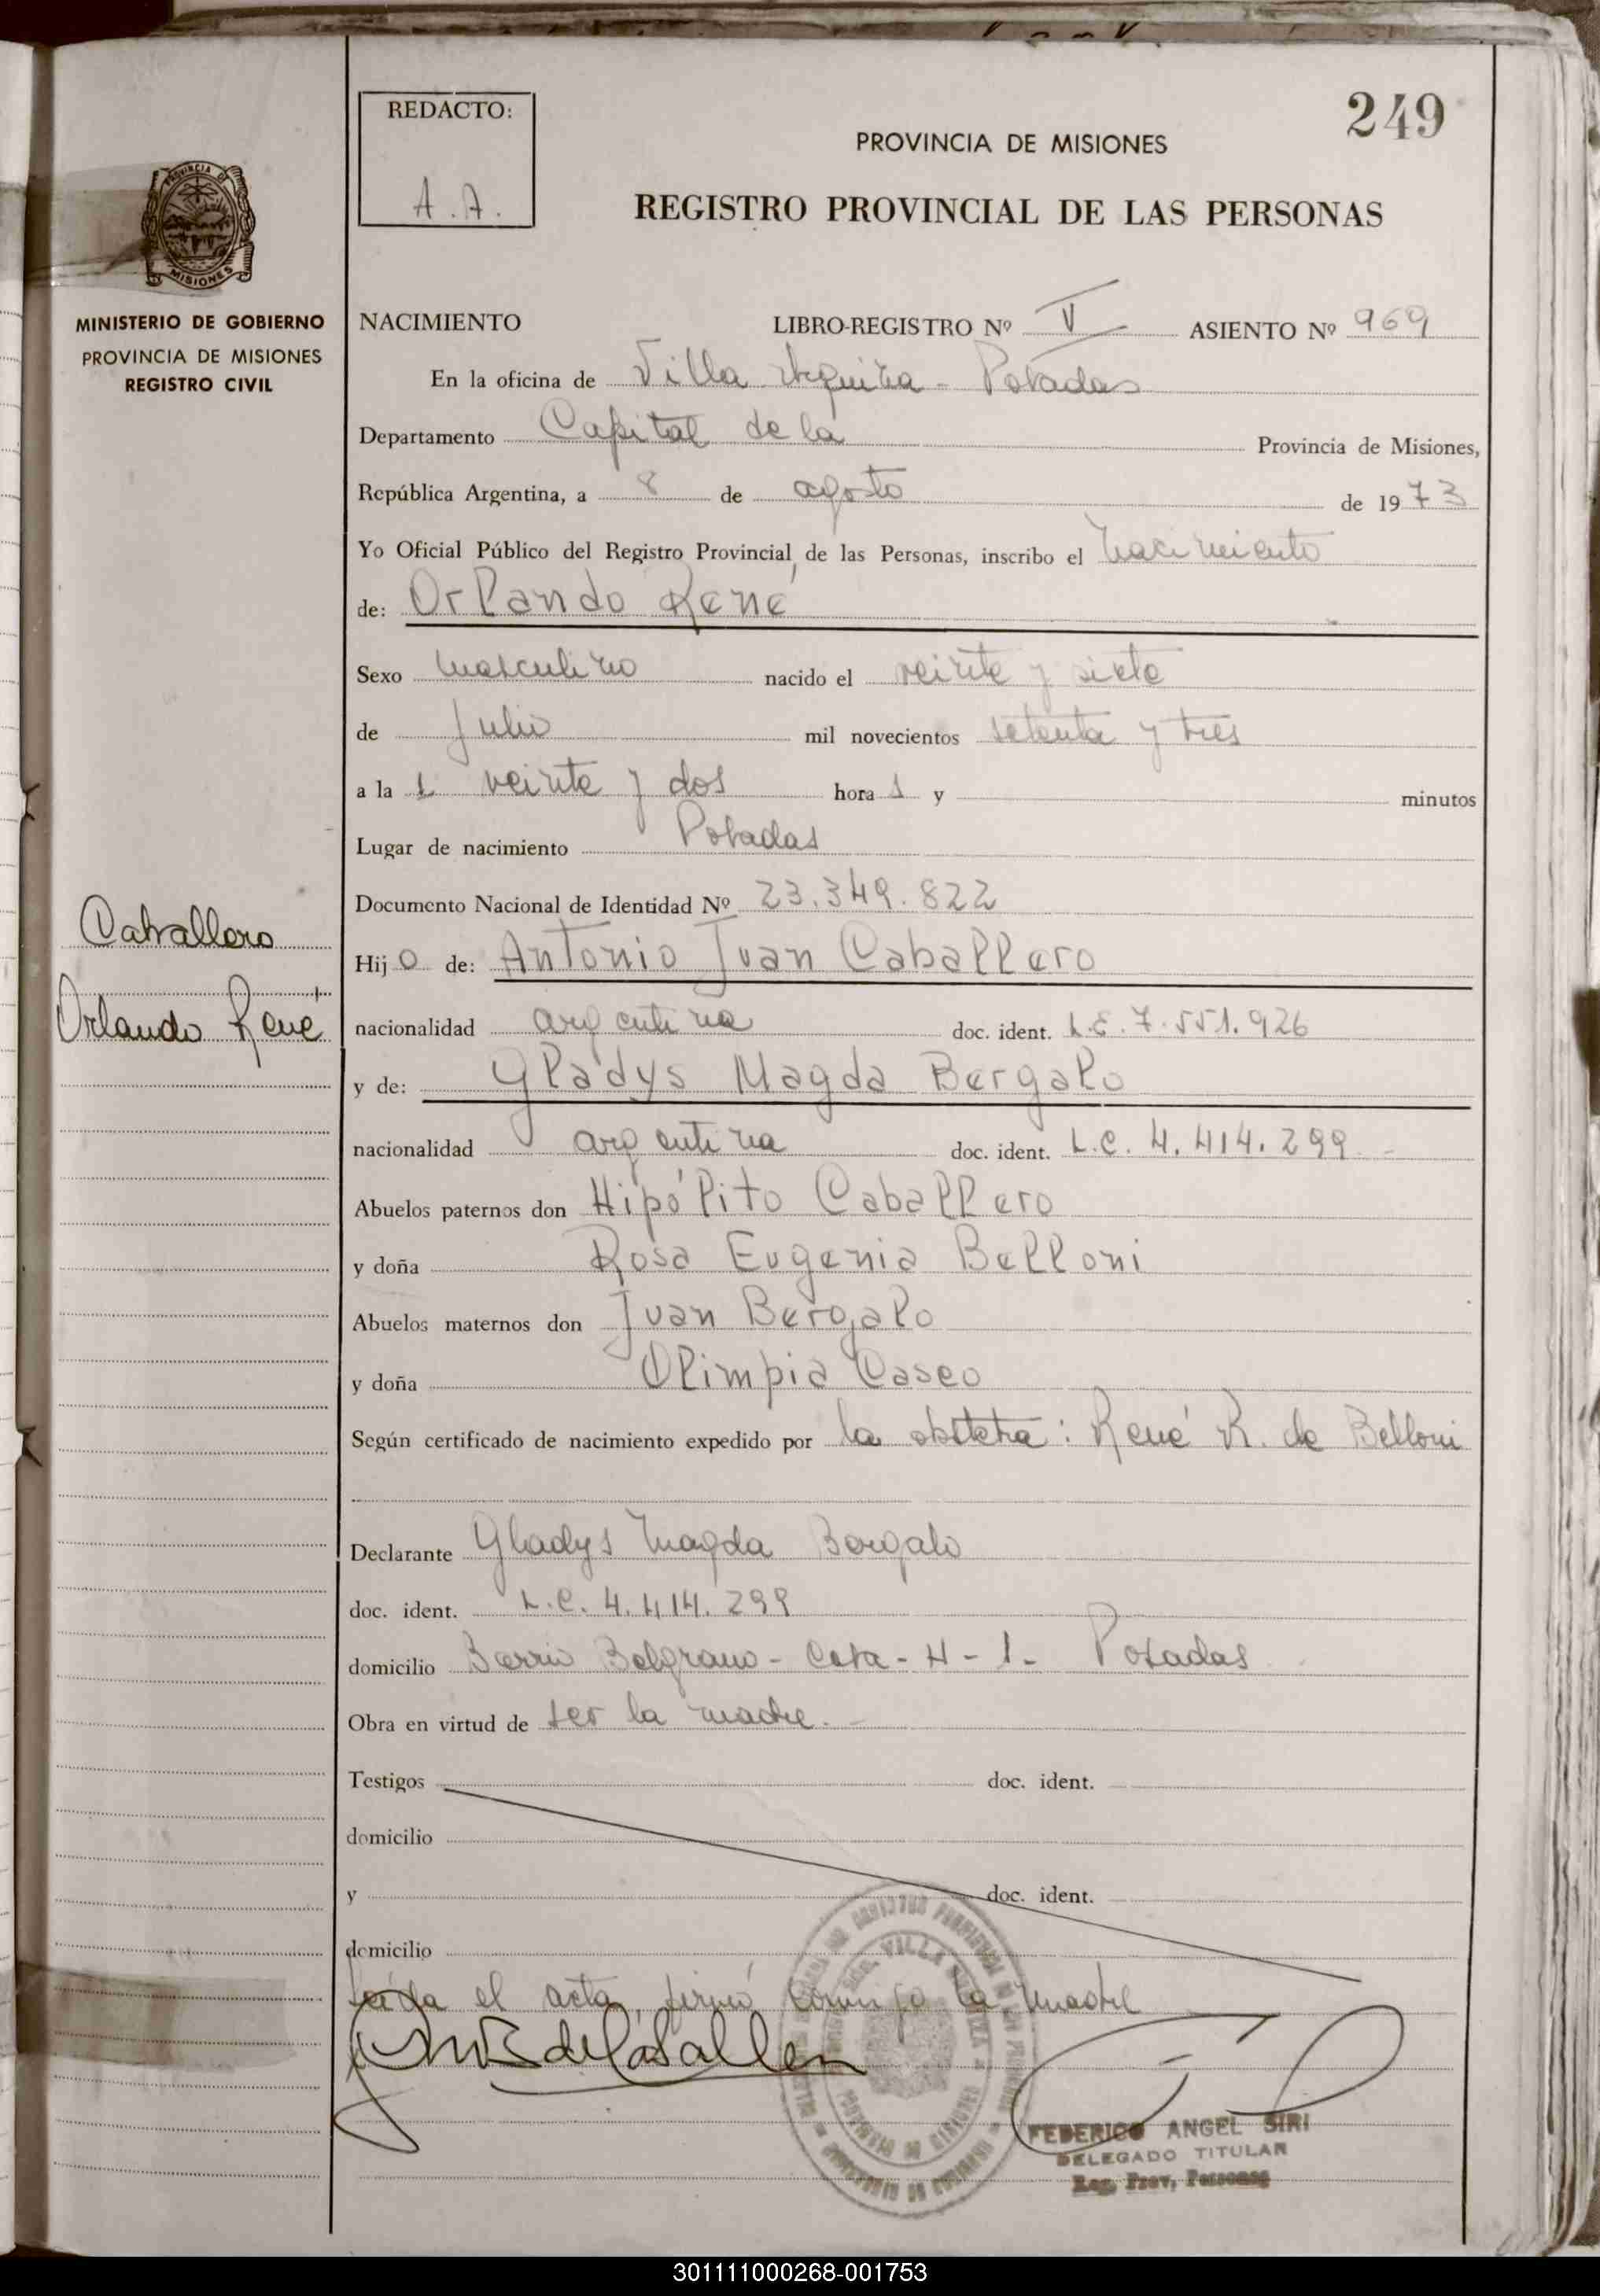 249
REDACTO:
A.A.
PROVINCIA DE MISIONES
REGISTRO PROVINCIAL DE LAS PERSONAS
MINISTERIO DE GOBIERNO
PROVINCIA DE MISIONES
REGISTRO CIVIL
NACIMIENTO LIBRO-REGISTRO Nº V ASIENTO Nº 969
En la oficina de Villa Urquiza - Posadas
Departamento Capital de la Provincia de Misiones,
República Argentina, a 8 de agosto de 1973
Yo Oficial Público del Registro Provincial de las Personas, inscribo el nacimiento
de: Orlando René
Sexo masculino nacido el veinte y siete
de Julio mil novecientos setenta y tres
a la s veinte y dos hora s y minutos
Lugar de nacimiento Posadas
Documento Nacional de Identidad Nº 23.349.822
Caballero
Orlando René
Hijo de: Antonio Juan Caballero
nacionalidad argentina doc. ident. L.E. 7.551.926
y de: Gladys Magda Bergalo
nacionalidad argentina doc. ident. L.C. 4.414.299 -
Abuelos paternos don Hipólito Caballero
y doña Rosa Eugenia Belloni
Abuelos maternos don Juan Bergalo
y doña Olimpia Caseo
Según certificado de nacimiento expedido por la obstetra: René R. de Belloni
Declarante Gladys Magda Bergalo
doc. ident. L.C. 4.414.299
domicilio Barrio Belgrano - Casa - H - 1 - Posadas
Obra en virtud de ser la madre. -
Testigos doc. ident.
domicilio
y doc. ident.
domicilio
Leída el acta, firmó conmigo la madre
FEDERICO ANGEL SIRI
DELEGADO TITULAR
Reg. Prov. Personas
301111000268-001753